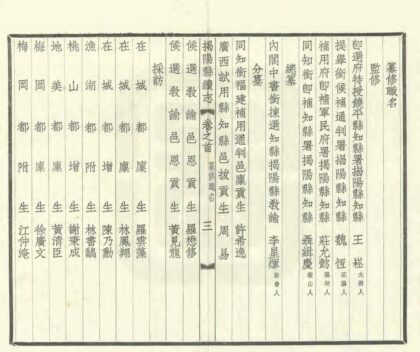 纂修職名
監修
即選府特授饒平縣知縣署揭陽縣知縣 王崧 大興人
提舉銜候補通判署揭陽縣知縣 魏恆
補用府即補軍民府署揭陽縣知縣 莊允懿 陽湖人
同知銜即補知縣署揭陽縣知縣 聶緝慶 衡山人
總纂
內閣中書銜揀選知縣揭陽縣教諭 李星輝 新會人
分纂
同知銜福建補用通判邑廩貢生 許希逸
廣西試用縣知縣邑拔貢生 周易
揭陽縣續志 卷之首 纂修職名 三
候選教諭邑恩貢生 羅懋修
候選教諭邑恩貢生 黃見龍
採訪
在城都廩生 羅雲藻
在城都廩生 林鳳翔
在城都增生 陳乃勳
漁湖都附生 林書韻
桃山都增生 謝秉成
地美都廩生 黃清臣
梅岡都廩生 徐廣文
梅岡都附生 江仲淹